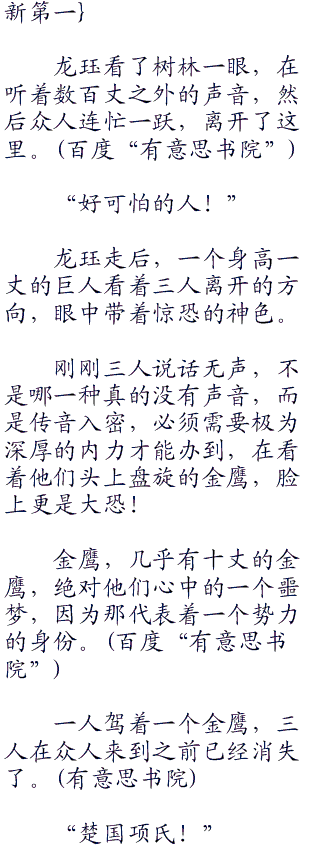 新第一}
龙珏看了树林一眼，在
听着数百丈之外的声音，然
后众人连忙一跃，离开了这
里。(百度“有意思书院”)
“好可怕的人！”
龙珏走后，一个身高一
丈的巨人看着三人离开的方
向，眼中带着惊恐的神色。
刚刚三人说话无声，不
是哪一种真的没有声音，而
是传音入密，必须需要极为
深厚的内力才能办到，在看
着他们头上盘旋的金鹰，脸
上更是大恐！
金鹰，几乎有十丈的金
鹰，绝对他们心中的一个噩
梦，因为那代表着一个势力
的身份。(百度“有意思书
院”)
一人驾着一个金鹰，三
人在众人来到之前已经消失
了。(有意思书院)
“楚国项氏！”